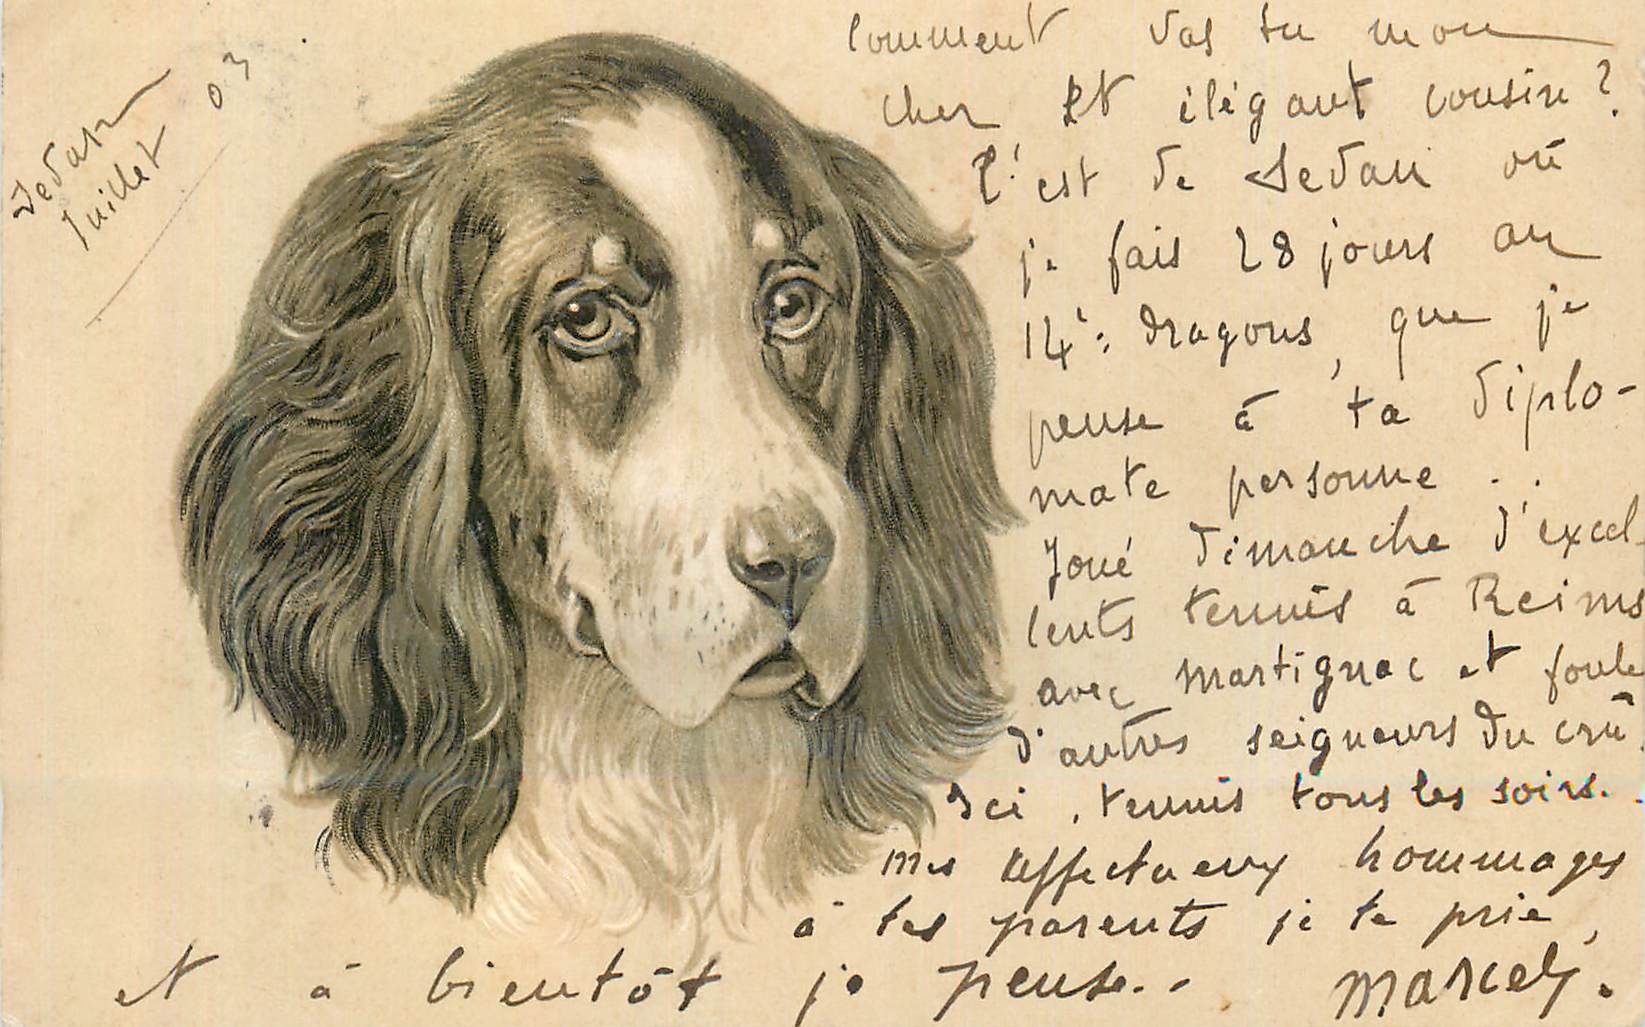 Sedan
Juillet 03
Comment vas tu mon
cher et élégant cousin ?
C'est de Sedan où
je fais 28 jours au
14e: dragons, que je
pense à ta diplo-
mate personne . .
Joué dimanche d'excel-
lents tennis à Reims
avec Martignac et foule
d'autres seigneurs du crû.
Ici, tennis tous les soirs.
mes affectueux hommages
à tes parents je te prie,
et à bientôt je pense..
Marcel.